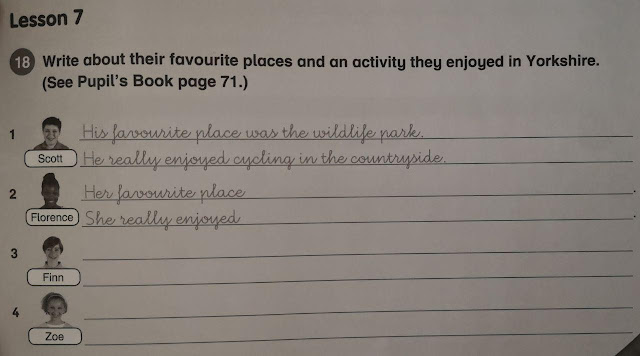 Lesson 7
18 Write about their favourite places and an activity they enjoyed in Yorkshire.
(See Pupil's Book page 71.)
1 His favourite place was the wildlife park.
Scott He really enjoyed cycling in the countryside.
2 Her favourite place .
Florence She really enjoyed .
3
Finn
4
Zoe